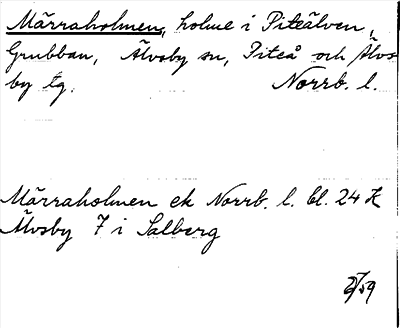 Märraholmen, holme i Piteälven,
Grubban, Älvsby sn, Piteå och Älvs
by tg. Norrb. l.
Märraholmen ek Norrb. l. bl. 24 K
Älvsby 7 i Salberg